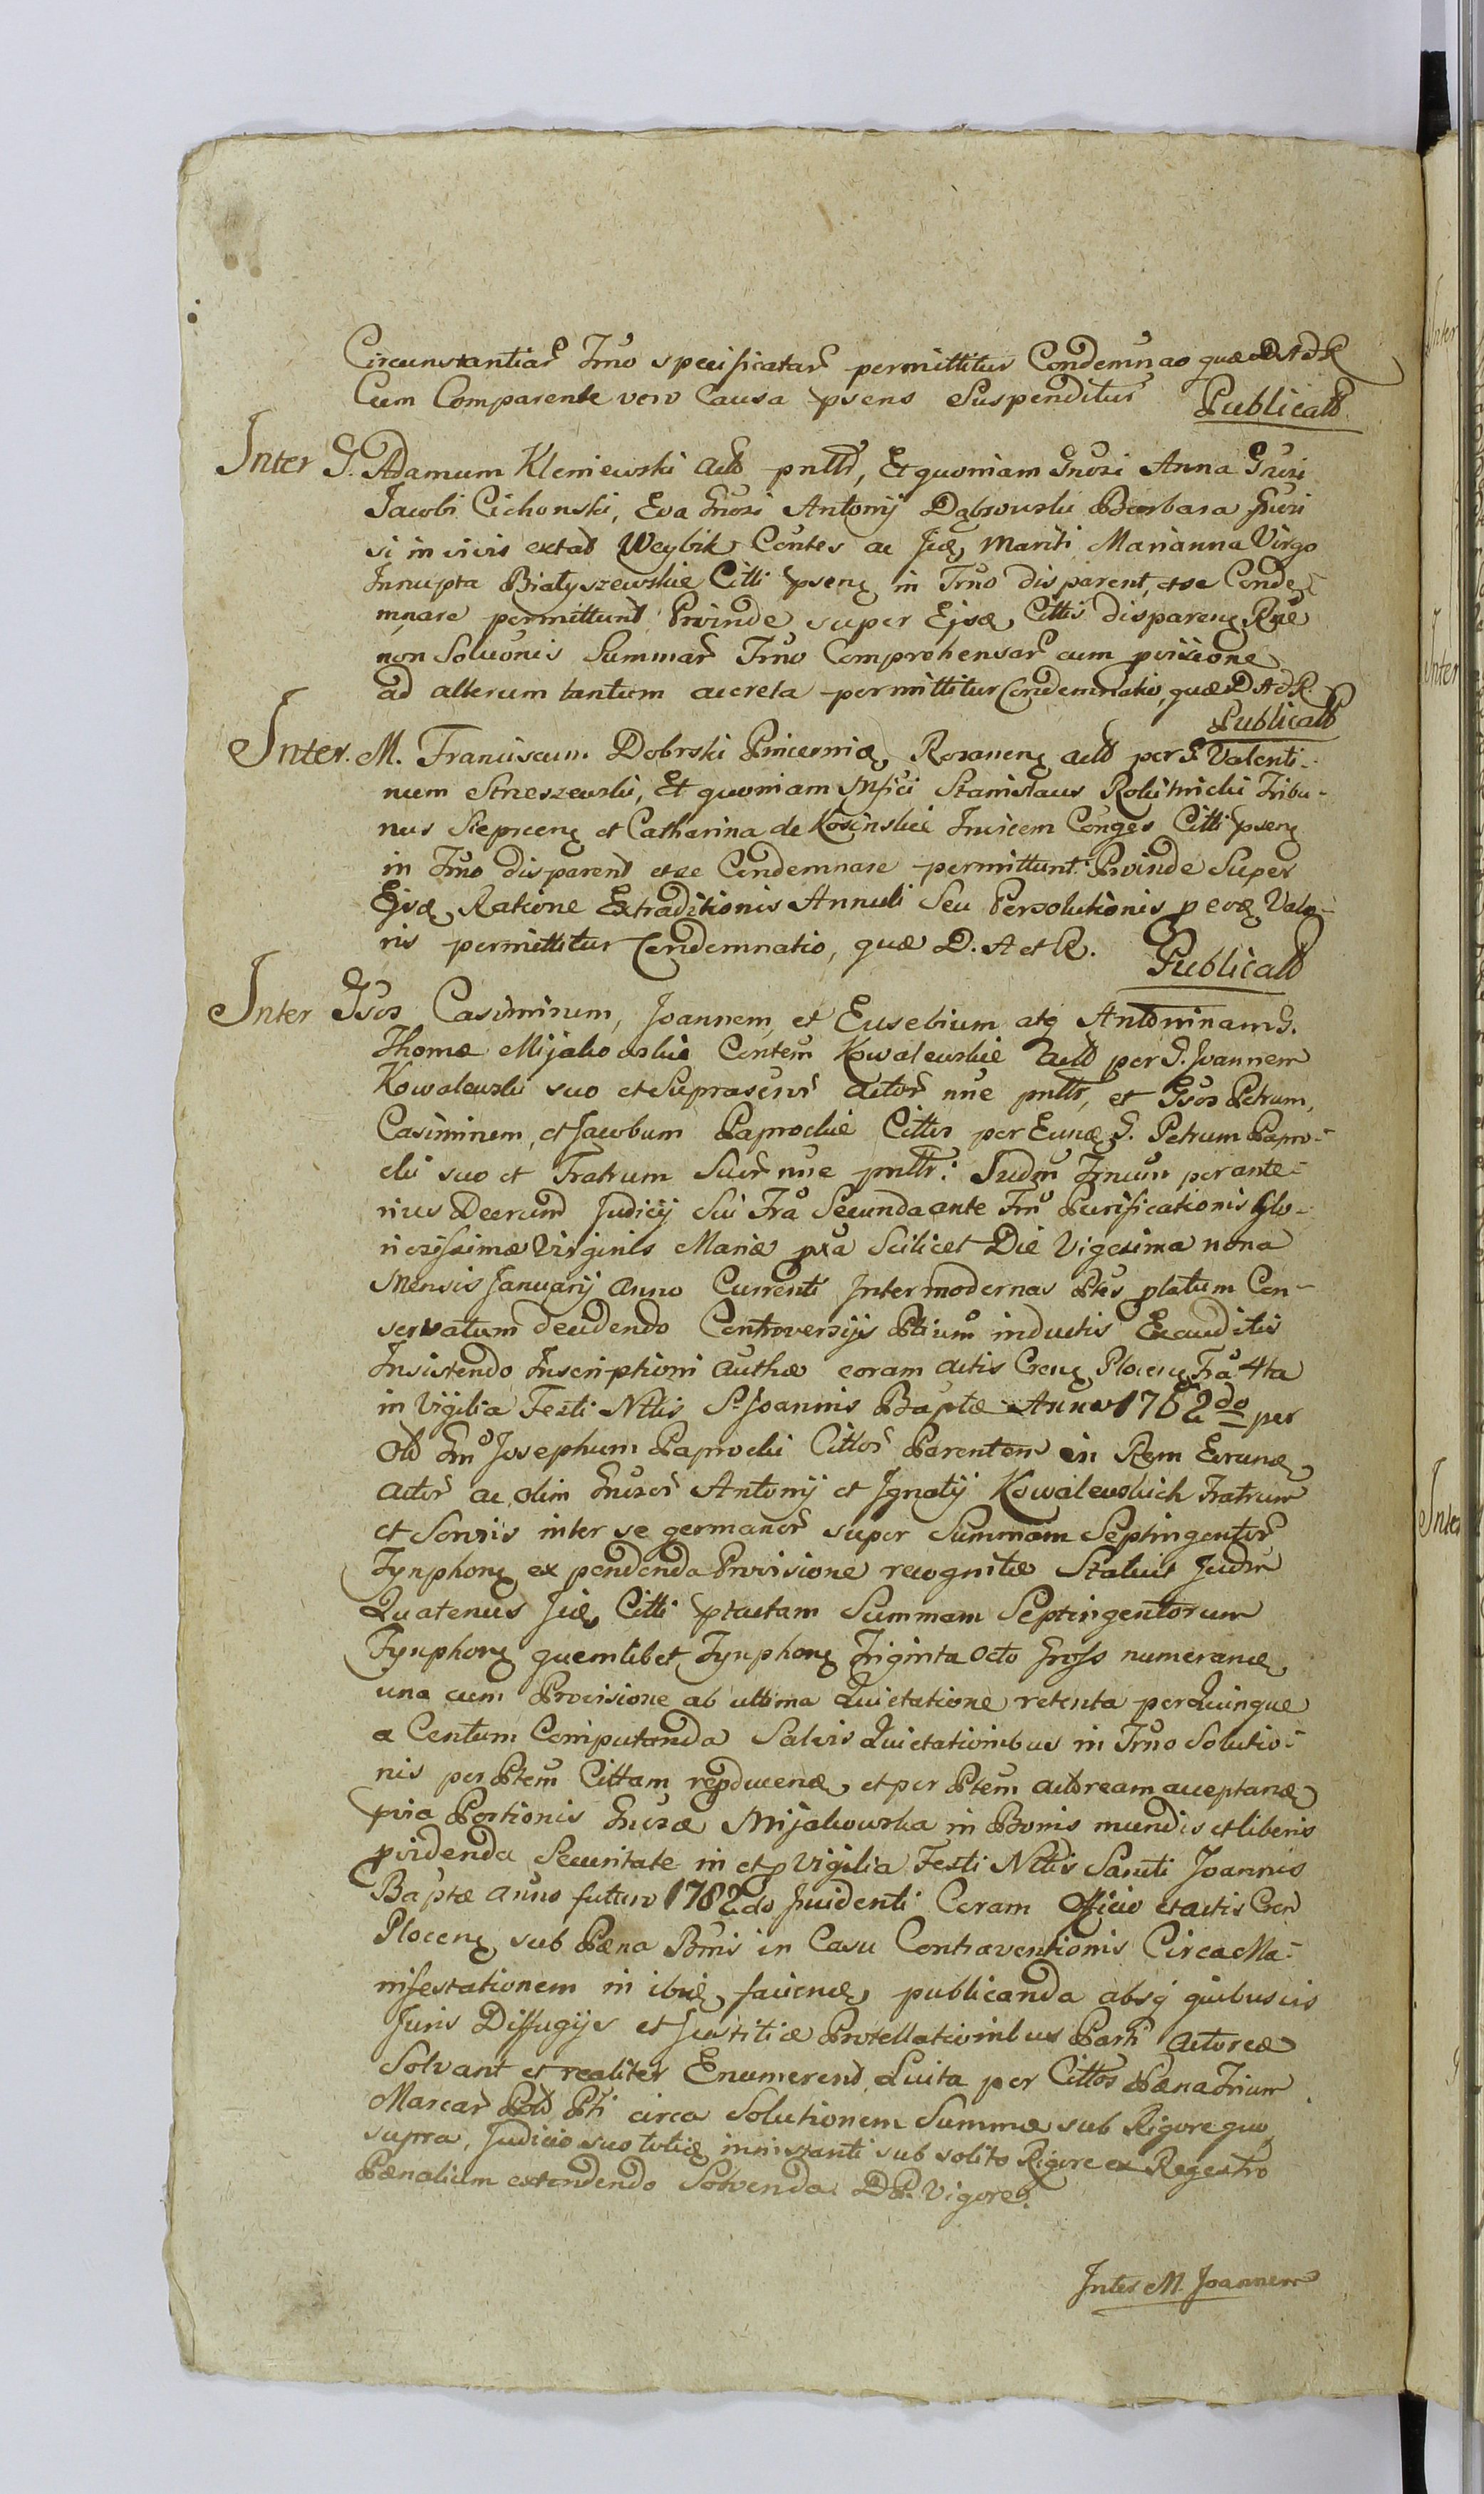 Circumstantiar Trno specificatar permittitur Condemnao quæ D A et R
Cum Comparente vero Causa psens Suspenditur Publicatb
Inter G. Adamum Kleniewski actb pnltr, Et quoniam Gnosi Anna Gnosi
Jacobi Cichonski, Eva Gnosi Antonij Dąbrowski Barbara Gnosi
si in vivis extat Weybik Contes ac Suæ Mariti Marianna Virgo
Innupta Białyszewskie Citti psenę in Trno disparent, et se Conde-
mnare permittunt Proinde super Ejsdę Cittis disparenę Rne
non Soluonis Summar Trno Comprehensar cum provisione
ad alterum tantum accreta permittitur Condemnatio, quæ D A et R.
Publicatb
Inter. M. Franciscum Dobrski Pincernię Rozanenę actb per G. Valenti-
num Strzeszewski, Et quoniam Mfici Stanislaus Rokitnicki Tribu-
nus Sieprcenę et Catharina de Kosinskie Invicem Conges Citti psenę
in Trno disparent et se Condemnare permittunt Proinde Super
Ejsdę Ratione Extraditionis Annuli Seu Persolutionis pevę Valo-
ris permittitur Condemnatio, quæ D. A et R. Publicatb
Inter Gsos Casimirum, Joannem, et Eusebium atq Antoninam G.
Thomæ Mijakowskie Contem Kowalewskie Actb per G. Joannem
Kowalewski suo et Suprascror Actor nne pnltr, et Gsos Petrum,
Casimirum, et Jacobum Paprockie Cittos per Eundę G. Petrum Papro-
cki suo et Fratrum Suor nne pnltr: Judm Trnum per ante-
rius Decretum Judicij Sui Fra Secunda ante Fm Purificationis Glo-
riosissimæ Virginis Mariæ pxa Scilicet Die Vigesima nona
Mensis Januarij Anno Currenti Inter modernas Ptes platum Con-
servatum decidendo Controversijs Ptium inductis Exauditis
Insistendo Inscriptioni Authæ coram Actis Crenę Plocenę Fra 4ta
in Vigilia Festi Nttis S. Joannis Baptæ Anno 1762do per
Olb Gm Josephum Paprocki Cittor Parentem in Rem Eorundę
Actor ac olim Gnosor Antonij et Ignatij Kowalewskich Fratrum
et Sororis inter se germanor super Summam Septingentor
Tynphonę ex pendenda Provisione recognitæ Statuit Judm
Quatenus Juę Citti ptactam Summam Septingentorum
Tynphonę quemlibet Tynphonę Triginta octo Gross numerandę
una cum Provisione ab ultima Quietatione retenta per Quinque
a Centum Computanda Salvis Quietationibus in Trno Solutio-
nis per Ptem Cittam repducendę et per Ptem Actoream acceptandę
pvia Portionis Gnosæ Mijakowska in Bonis mundis et liberis
pvidenda Securitate in et p Vigilia Festi Nttis Sancti Joannis
Baptæ Anno futuro 1782do Incidenti Coram Officio et Actis Cren
Plocenę sub Pæna Bnis in Casu Contraventionis Circa Ma-
nifestationem in ibidę faciendę publicanda absq quibusvis
Juris Diffugijs et Justitiæ Protellationibus Parti Actoreæ
Solvant et realiter Enumerent, Luita per Cittos Pæna Trium
Marcar Pol Pti circa Solutionem Summæ sub Rigore quo
supra, Judicio suo totię innistanti sub solito Rigore ex Regestro
Pænalium extendendo Solvenda D P. Vigore.
Inter M. Joannem